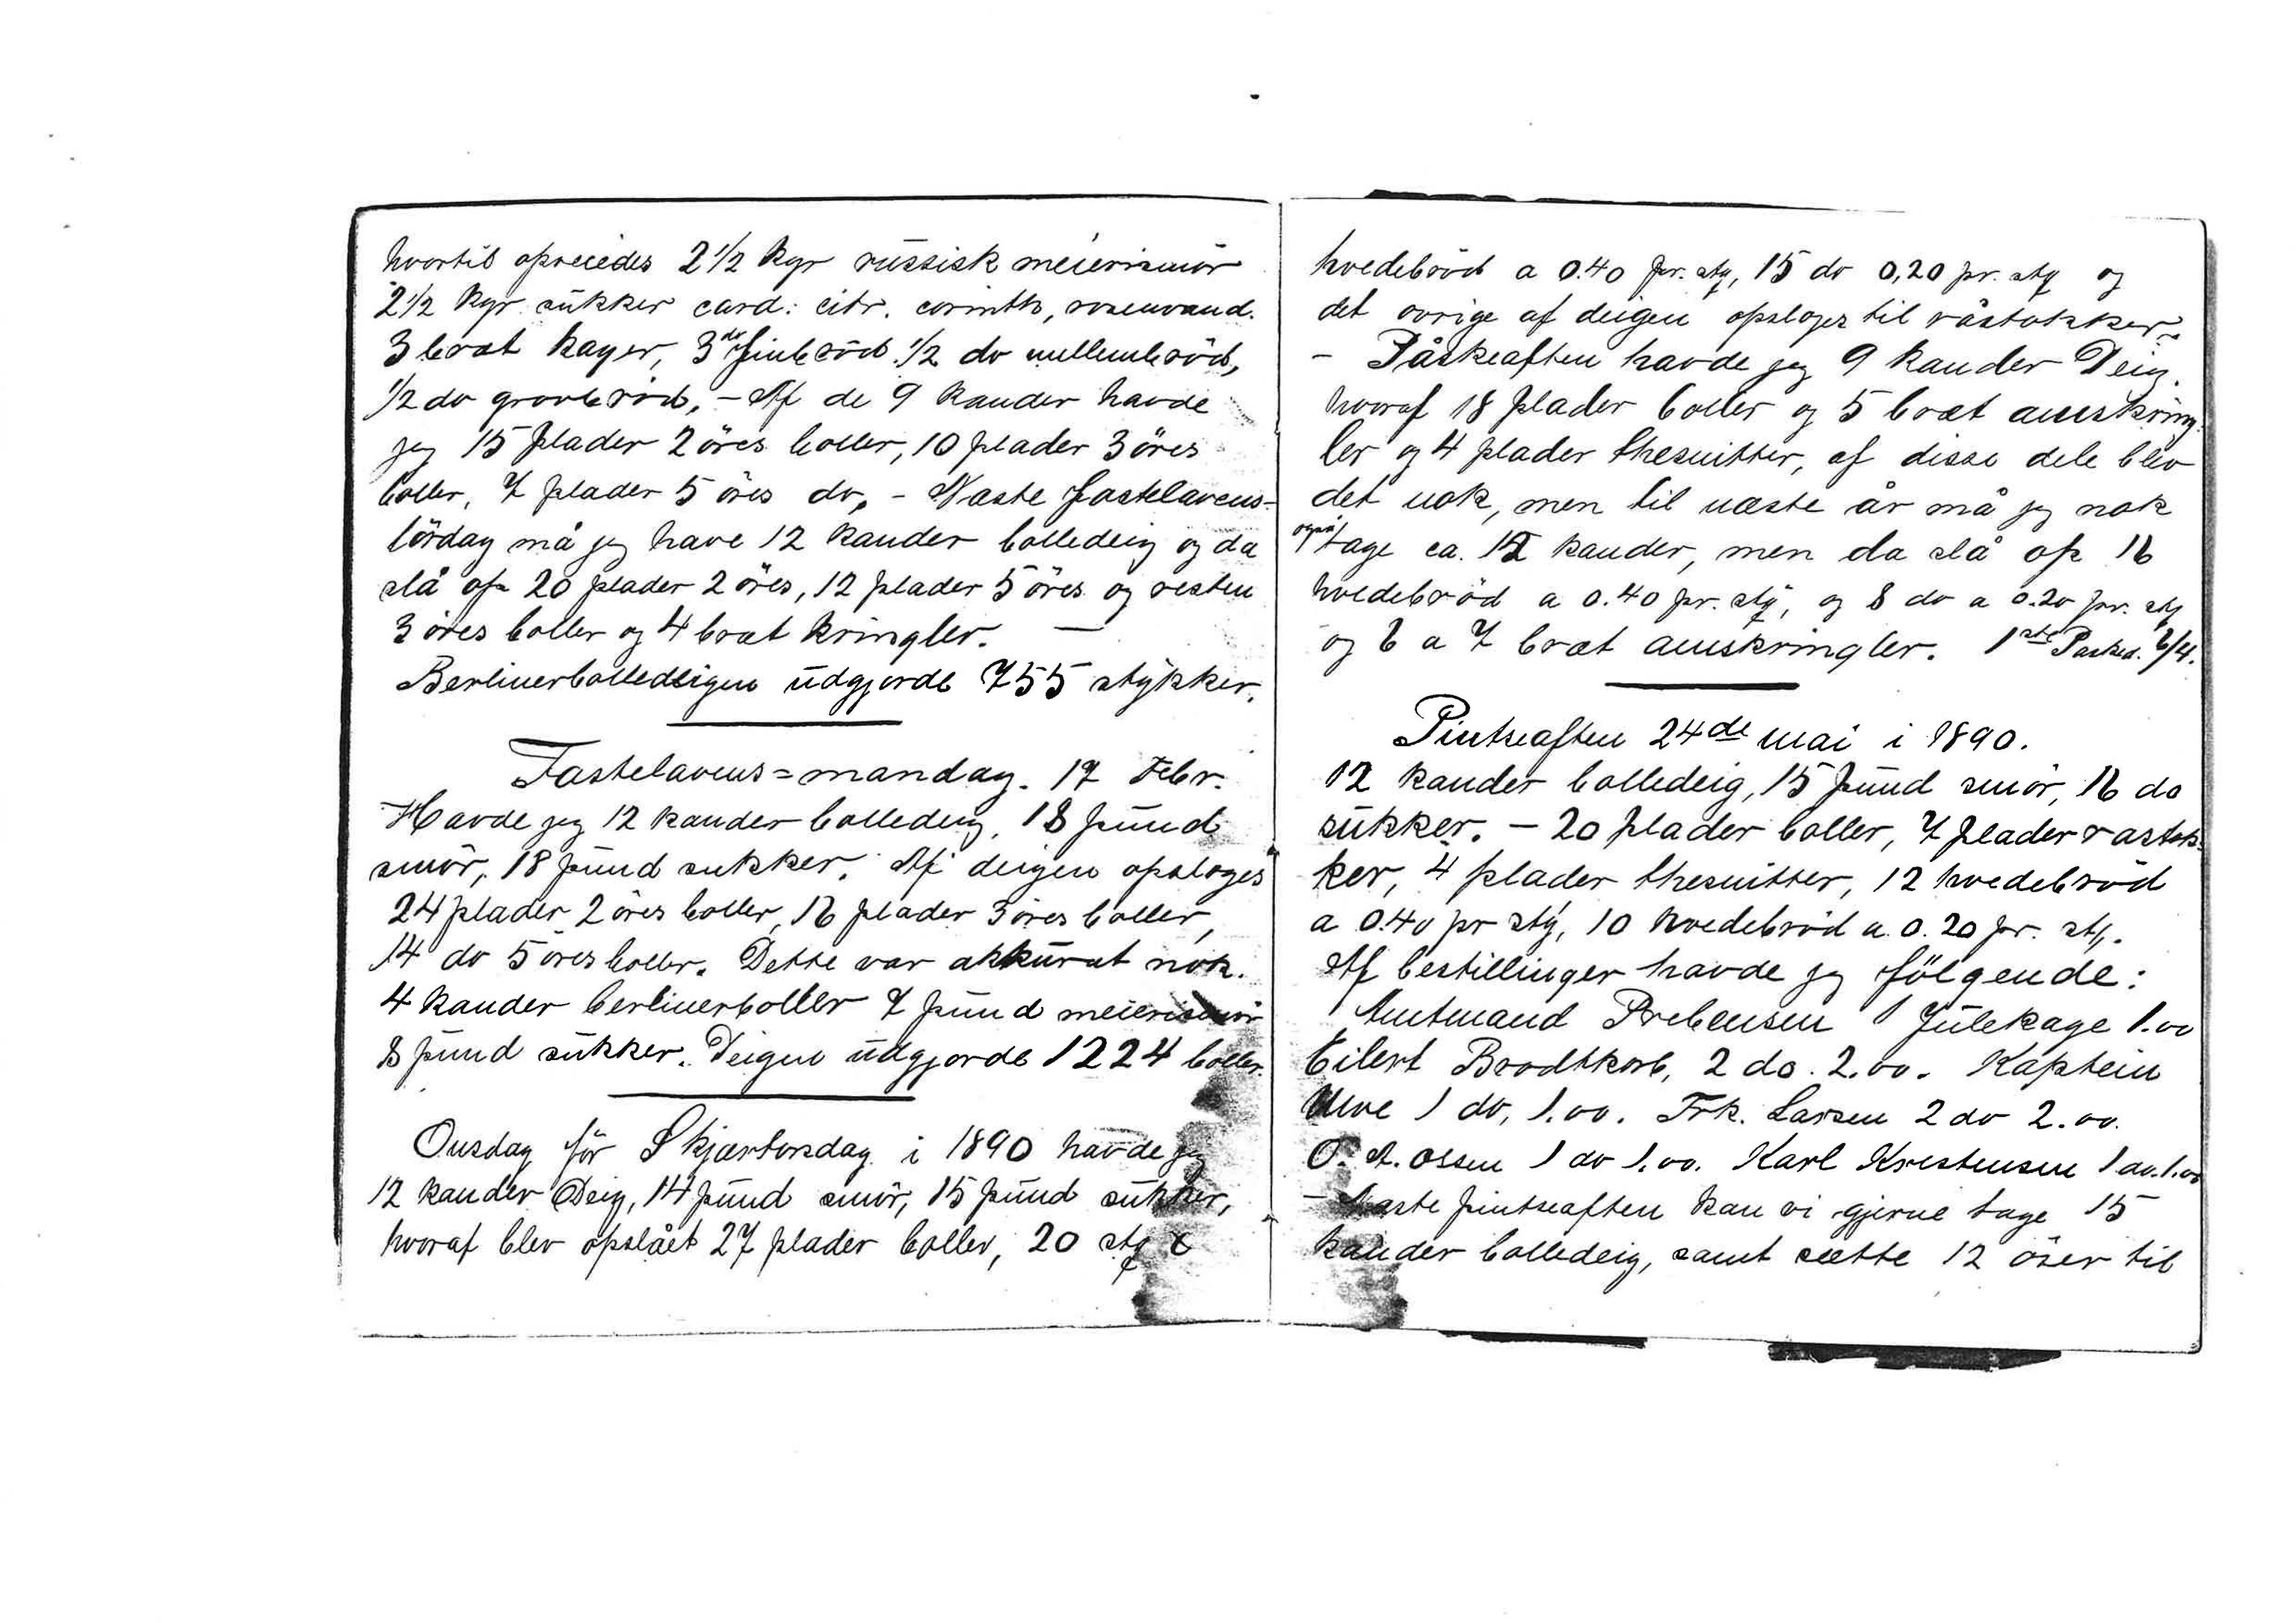 hvortil opveiedes 2 1/2 kgr russisk meierismör
2 1/2 kgr sukker card: citr. corinth, rosenvand.
3 bræt kager, 3 do finbröd 1/2 do mellembröd,
1/2 do grovbröd. - Af de 9 kander havde
jeg 15 plader 2 öres boller, 10 plader 3 öres
boller, 7 plader 5 öres do. - Næste fastelavens-
lördag må jeg have 12 kander bolledeig og da
slå op 20 plader 2 öres, 12 plader 5 öres og resten
3 öres boller og 4 bræt kringler. —
Berlinerbolledeigen udgjorde 755 stykker.
Fastelavens=mandag. 17 Febr.
Havde jeg 12 kander bolledeig, 18 pund
smör, 18 pund sukker. Af deigen opsloges
24 plader 2 öres boller, 16 plader 3 öres boller,
14 do 5 öres boller. Dette var akkurat nok.
4 kander berlinerboller 7 pund meierismör
8 pund sukker. Deigen udgjorde 1224 boller.
Onsdag för Skjærtorsdag i 1890 havde jeg
12 kander Deig, 14 pund smör, 15 pund sukker,
hvoraf blev opslået 27 plader boller, 20 stq
hvedebröd a 0.40 pr. stq, 15 do 0,20 pr. stq og
det övrige af deigen opsloges til råstokker
- Påskeaften havde jeg 9 kander Deig.
hvoraf 18 plader boller og 5 bræt amskring
ler og 4 plader thesnitter, af disse dele blev
det nok, men til næste år må jeg nok
også tage ca. 12 kander, men da slå op 16
hvedebröd a 0.40 pr. stq, og 8 do a 0.20 pr. stq
og 6 a 7 bræt amskringler. 1ste Påsked. 6/4.
Pintseaften 24de mai i 1890.
12 kander bolledeig, 15 pund smör, 16 do
sukker. - 20 plader boller, 7 plader rastok-
ker, 4 plader thesnitter, 12 hvedebröd
a 0.40 pr stq, 10 hvedebröd a 0.20 pr. stq.
Af bestillinger havde jeg fölgende:
Amtmand Prebensen 1 Julekage 1.00
Eilert Brodtkorb, 2 do. 2.00. Kaptein
1 do, 1.00. Frk. Larsen 2 do 2.00.
O. A. Olssen 1 do 1.00. Karl Kristensen 1 do. 1.00
- Næste pintseaften kan vi gjerne tage 15
kander bolledeig, samt sætte 12 öser til